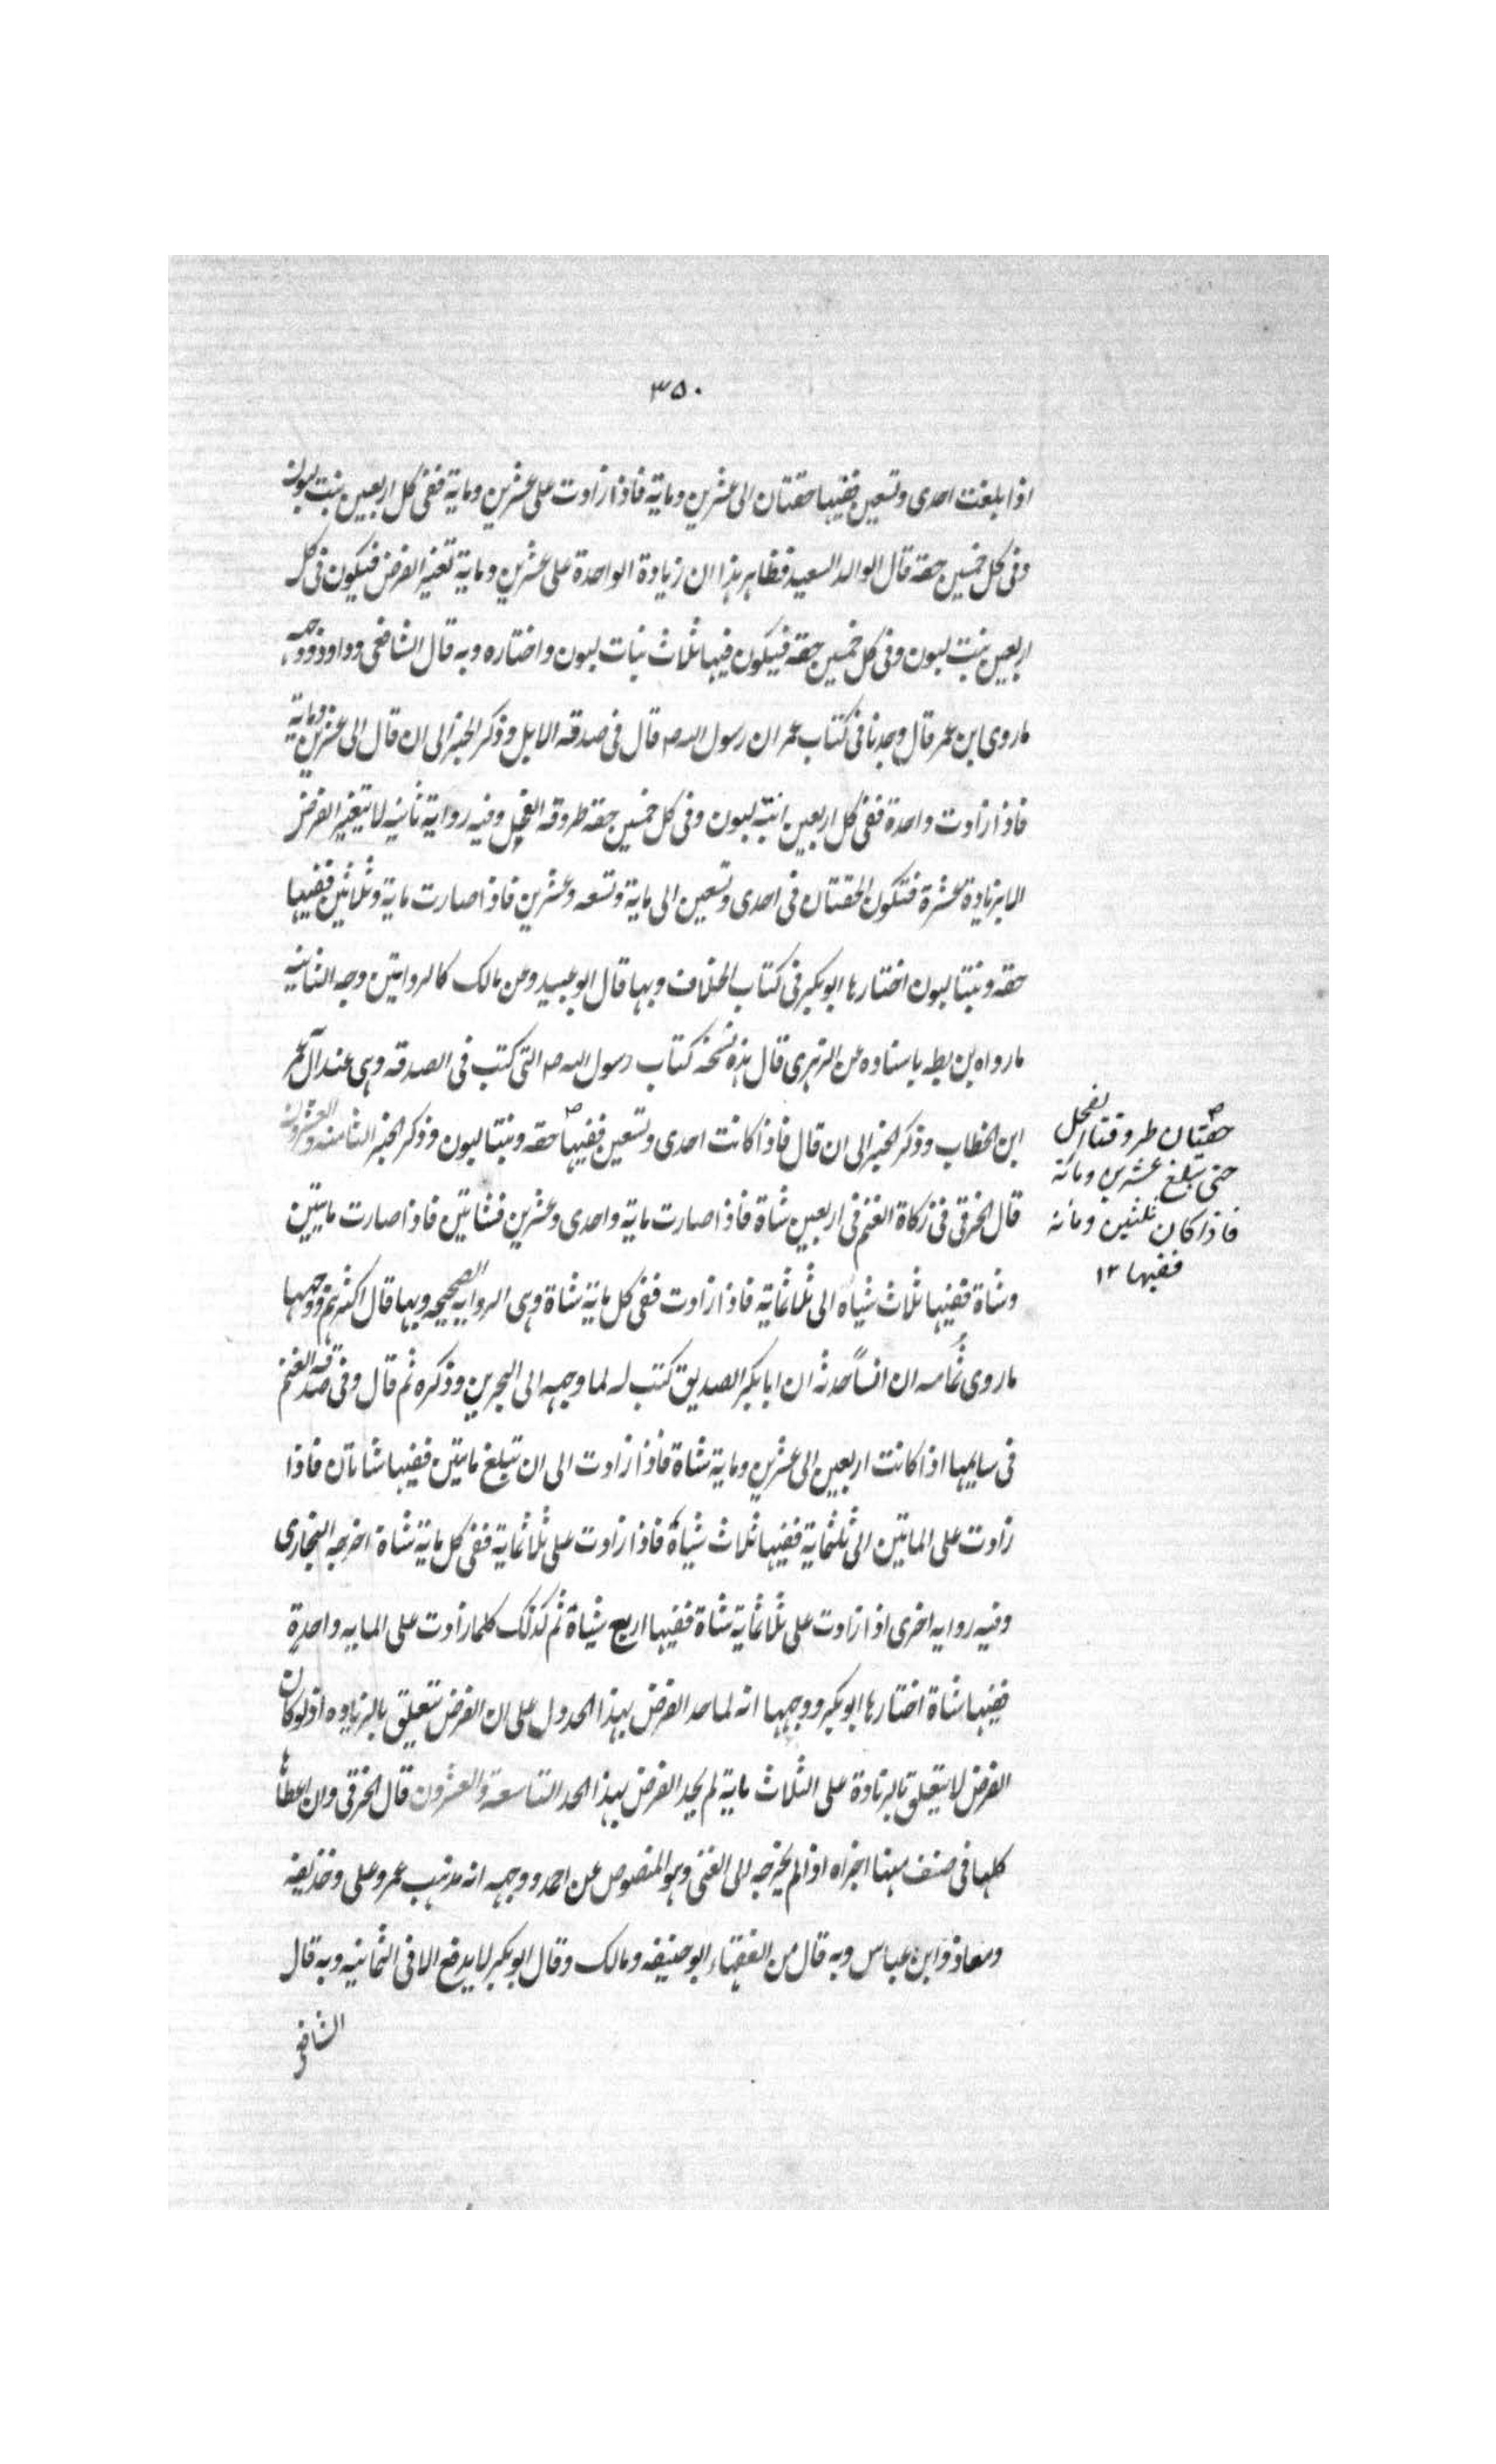 ٣٥٠
اذا بلغت احدى وتسعين ففيها حقتان الى عشرين وماية فاذا زادت على عشرين وماية ففى كل اربعين بنت لبون
وفى كل خمسين حقة قال الوالد السعيد فظاهر هذا ان زيادة الواحدة على عشرين وماية تغير الفرض فيكون فى كل
اربعين بنت لبون وفى كل خمسين حقة فيكون فيها ثلاث بنات لبون واختاره وبه قال الشافعى وداود ووجهه
ما روى ابن عمر قال وجدنا فى كتاب عمر ان رسول الله ص قال فى صدقة الابل وذكر الخبر الى ان قال الى عشرين وماية
فاذا زادت واحدة ففى كل اربعين ابنة لبون وفى كل خمسين حقة طروقة الفحل وفيه رواية ثانية لا يتغير الفرض
الا بزيادة عشرة فتكون الحقتان فى احدى وتسعين الى ماية وتسعه وعشرين فاذا صارت ماية وثلاثين ففيها
حقة وبنتا لبون اختارها ابوبكر فى كتاب الخلاف وبها قال ابو عبيد وعن مالك كالروايتين وجه الثانية
ما رواه بن بطه باسناده عن الزهرى قال هذه نسخة كتاب رسول الله ص التى كتب فى الصدقه وهى عند آل عمر
ابن الخطاب وذكر الخبر الى ان قال فاذا كانت احدى وتسعين ففيها حقه وبنتا لبون وذكر الخبر الثامنه والعشرون
حقتان طروقتا الفحل
حتى تبلغ عشرين ومائة
فاذا كان ثلثين ومائة
ففيها ١٢
قال الخرقى فى زكاة الغنم فى اربعين شاة فاذا صارت ماية واحدى وعشرين فشاتين فاذا صارت مايتين
وشاة ففيها ثلاث شياه الى ثلثماية فاذا زادت ففى كل ماية شاة وهى الرواية الصحيحه وبها قال اكثرهم ووجهها
ما روى ثُمامه ان انساً حدثه ان ابا بكر الصديق كتب له لما وجهه الى البحرين وذكره ثم قال وفى صدقة الغنم
فى سايمها اذا كانت اربعين الى عشرين وماية شاة فاذا زادت الى ان تبلغ مايتين ففيها شاتان فاذا
زادت على المايتين الى ثلثماية ففيها ثلاث شياة فاذا زادت على ثلاثماية ففى كل ماية شاة اخرجه البخارى
وفيه روايه اخرى اذا زادت على ثلاثماية شاة ففيها اربع شياة ثم كذلك كلما زادت على المايه واحدة
ففيها شاة اختارها ابوبكر ووجهها انه لما حد الفرض بهذا الحد دل على ان الفرض يتعلق بالزياده اذ لو كان
الفرض لا يتعلق بالزيادة على الثلاث ماية لم يحد الفرض بهذا الحد التاسعة والعشرون قال الخرقى وان اعطاها
كلها فى صنف منها اجزاه اذا لم يخرجه الى الغنى وهو المنصوص عن احمد ووجهه انه مذهب عمر وعلى وحذيفه
ومعاذ وابن عباس وبه قال من الفقهاء ابو حنيفه ومالك وقال ابوبكر لا يدفع الا فى الثمانيه وبه قال
الشافعى